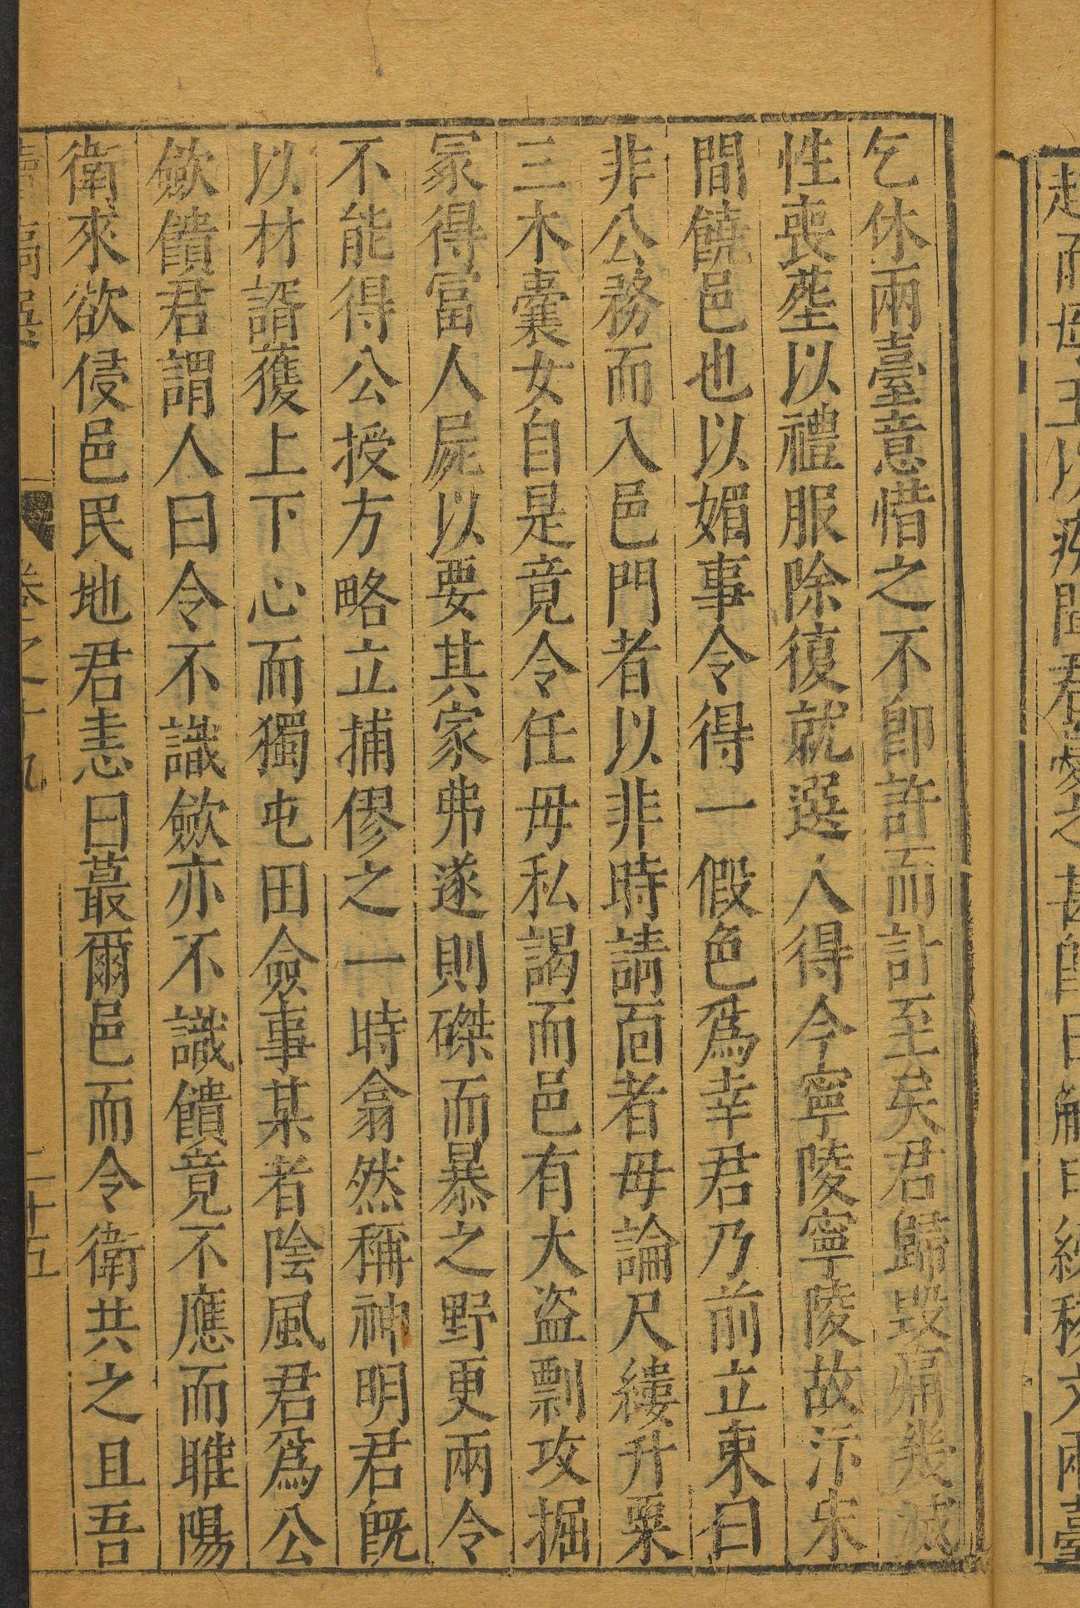 起而母王以疾聞君憂之甚即日解印綬移文兩臺
乞休兩臺意惜之不卽許而計至矣君歸毀痛幾滅
性喪塟以禮服除復就選人得今寧陵寧陵故汴宋
間饒邑也以媚事令得一假色爲幸君乃前立束曰
非公務而入邑門者以非時請而者毋論尺縷升粟
三木囊女自是竟令任毋私謁而邑有大盜剽攻掘
冡得富人屍以要其家弗遂則磔而暴之野更兩令
不能得公授方略立捕僇之一時翕然稱神明君既
以材諝獲上下心而獨屯田僉事某者陰風君爲公
歛饋君謂人曰令不識歛亦不識饋竟不應而睢陽
衛來欲侵邑民地君恚曰蕞爾邑而令衛共之且吾
續稿選 卷之十九 二十五